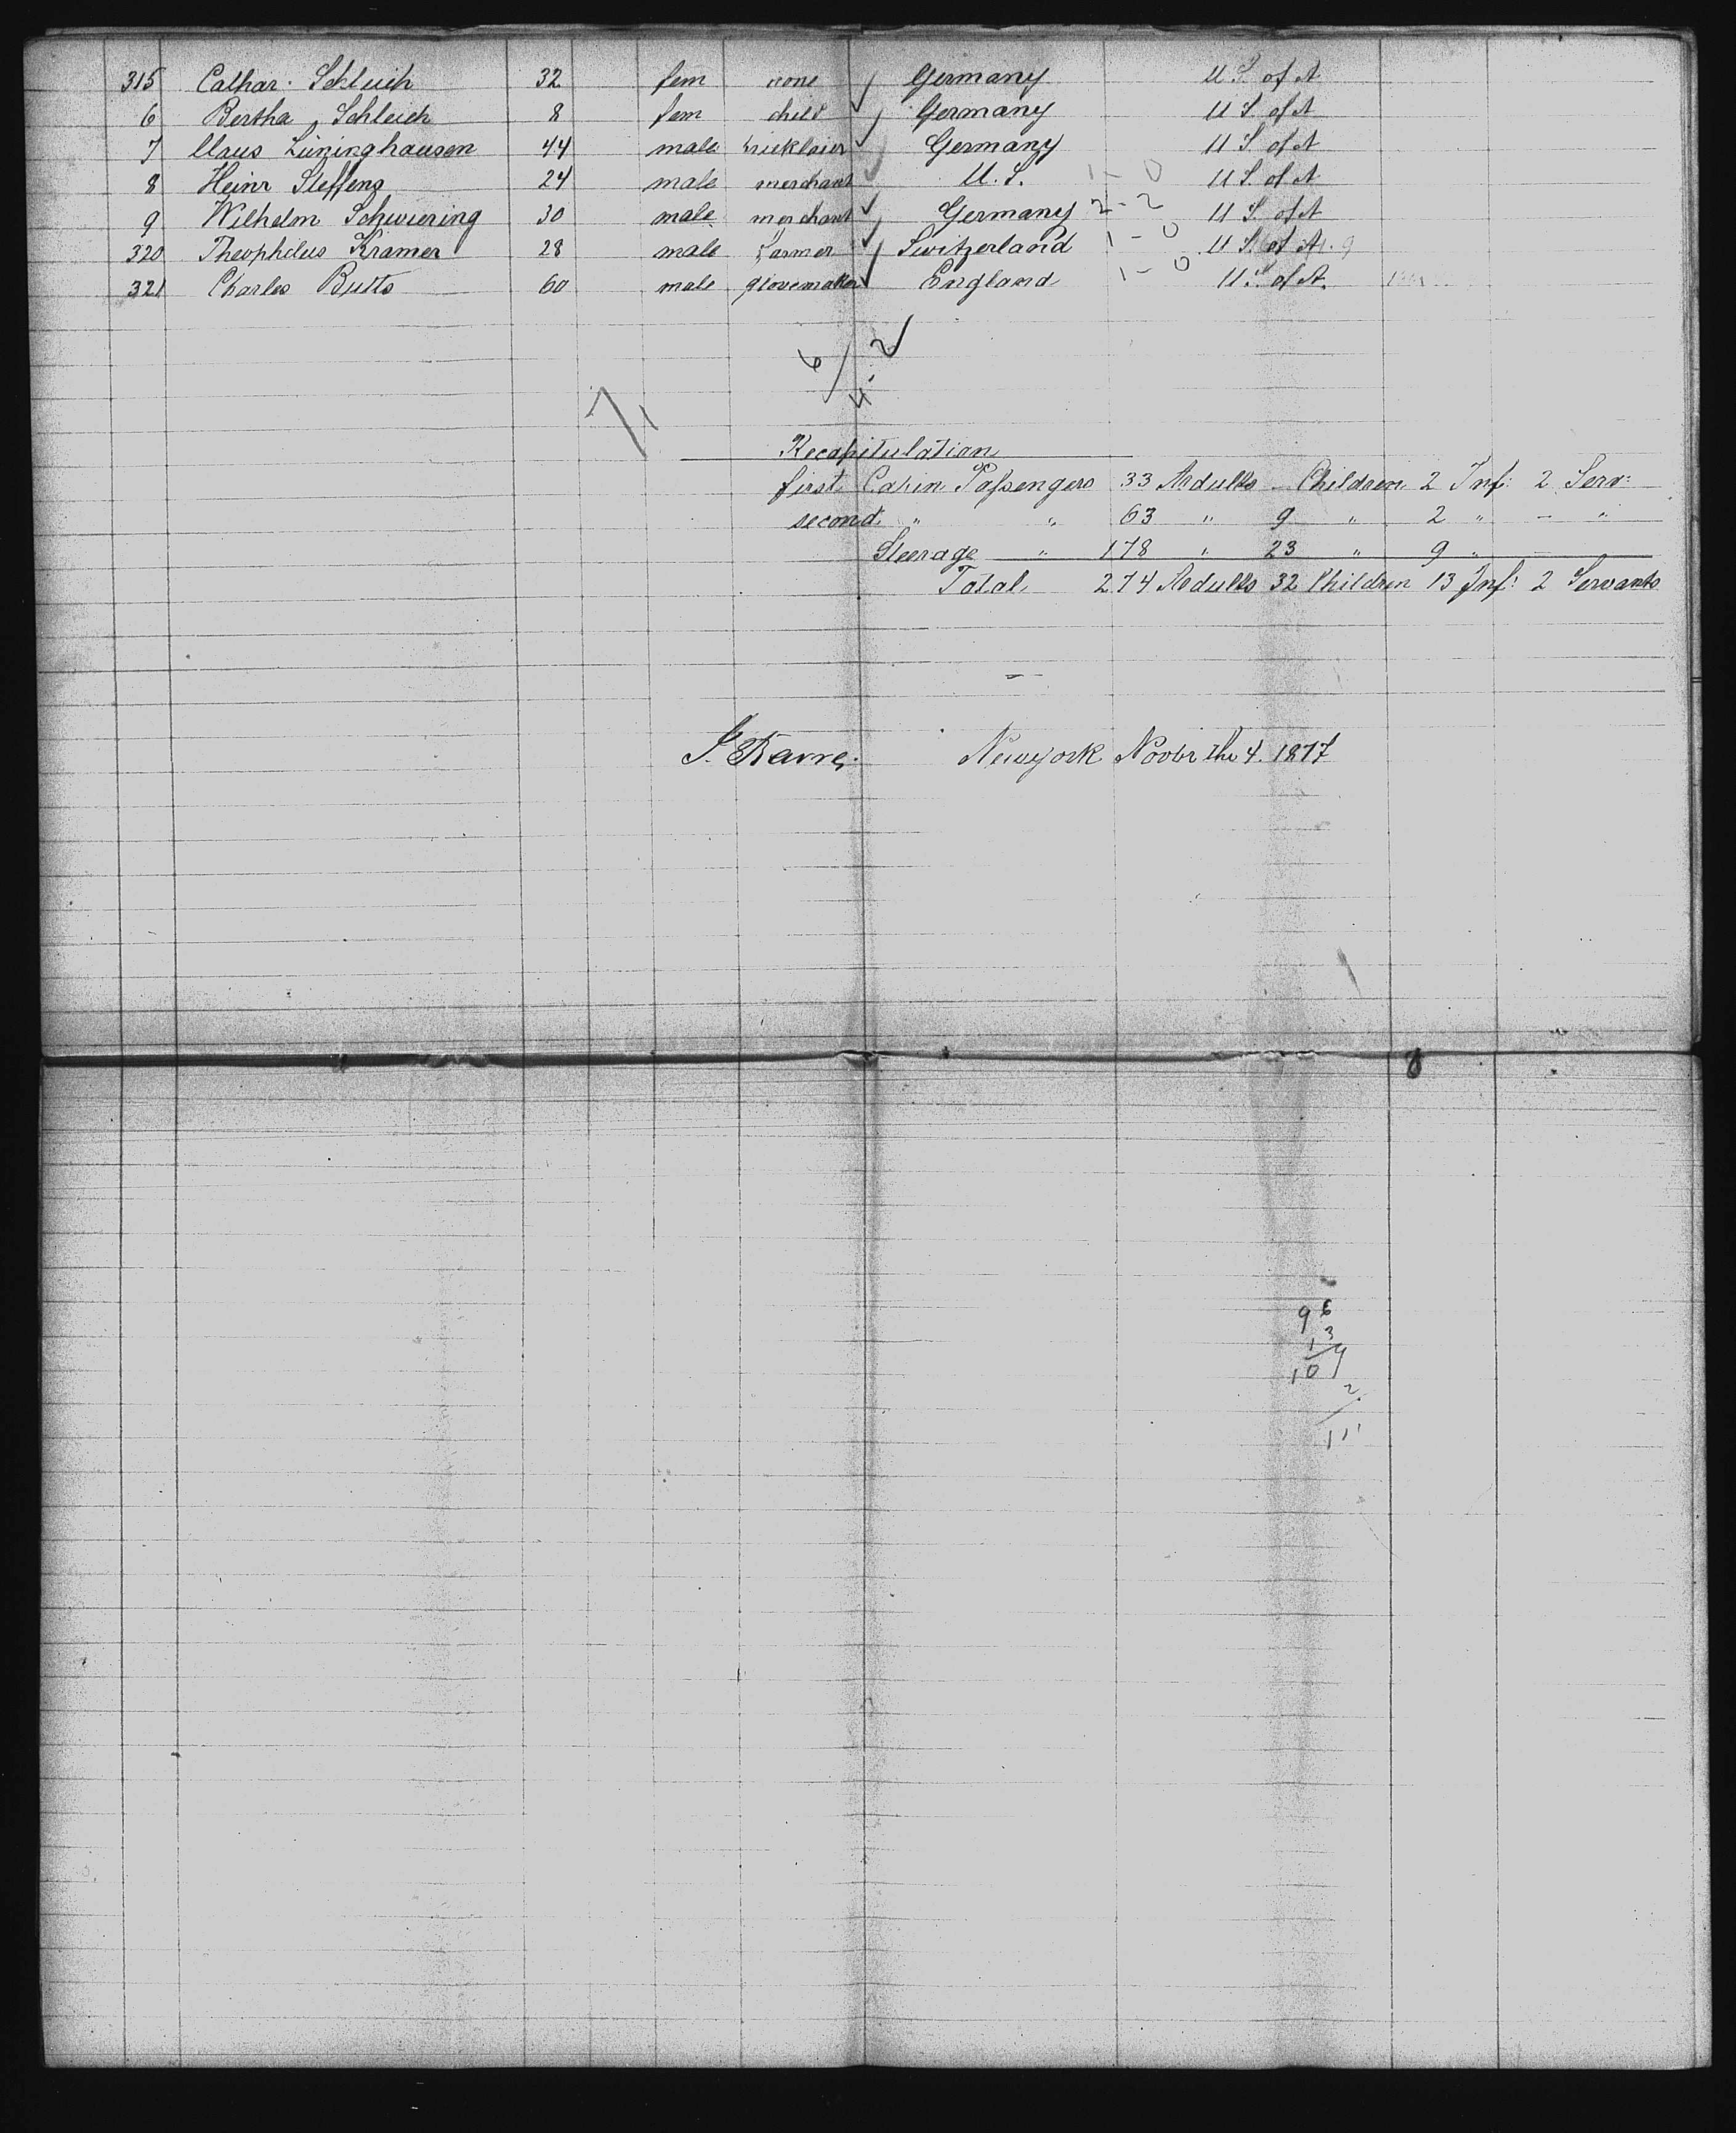 315 Cathar. Schleich 32 fem none Germany U.S. of A
6 Bertha Schleich 8 fem child Germany U S. of A
7 Claus Lüninghausen 44 male bricklaier Germany U S. of A
8 Heinr Steffens 24 male merchant U. S. 1-0 U S. of A
9 Wilhelm Schwiering 30 male merchant Germany 2-2 U S. of A
320 Theophilus Kramer 28 male Farmer Switzerland 1-0 U S. of A
321 Charles Butts 60 male glovemaker England 1-0 U.S. of A.
6/4-2
7/1
Recapitulation
first Cabin Passengers 33 Adults — Children 2 Inf: 2 Serv:
second " " 63 " 9 " 2 " — "
Steerage " 178 " 23 " 9 " —
Total 274 Adults 32 Children 13 Inf: 2 Servants
Newyork Novbr the 4. 1877
96
13
109
2
111